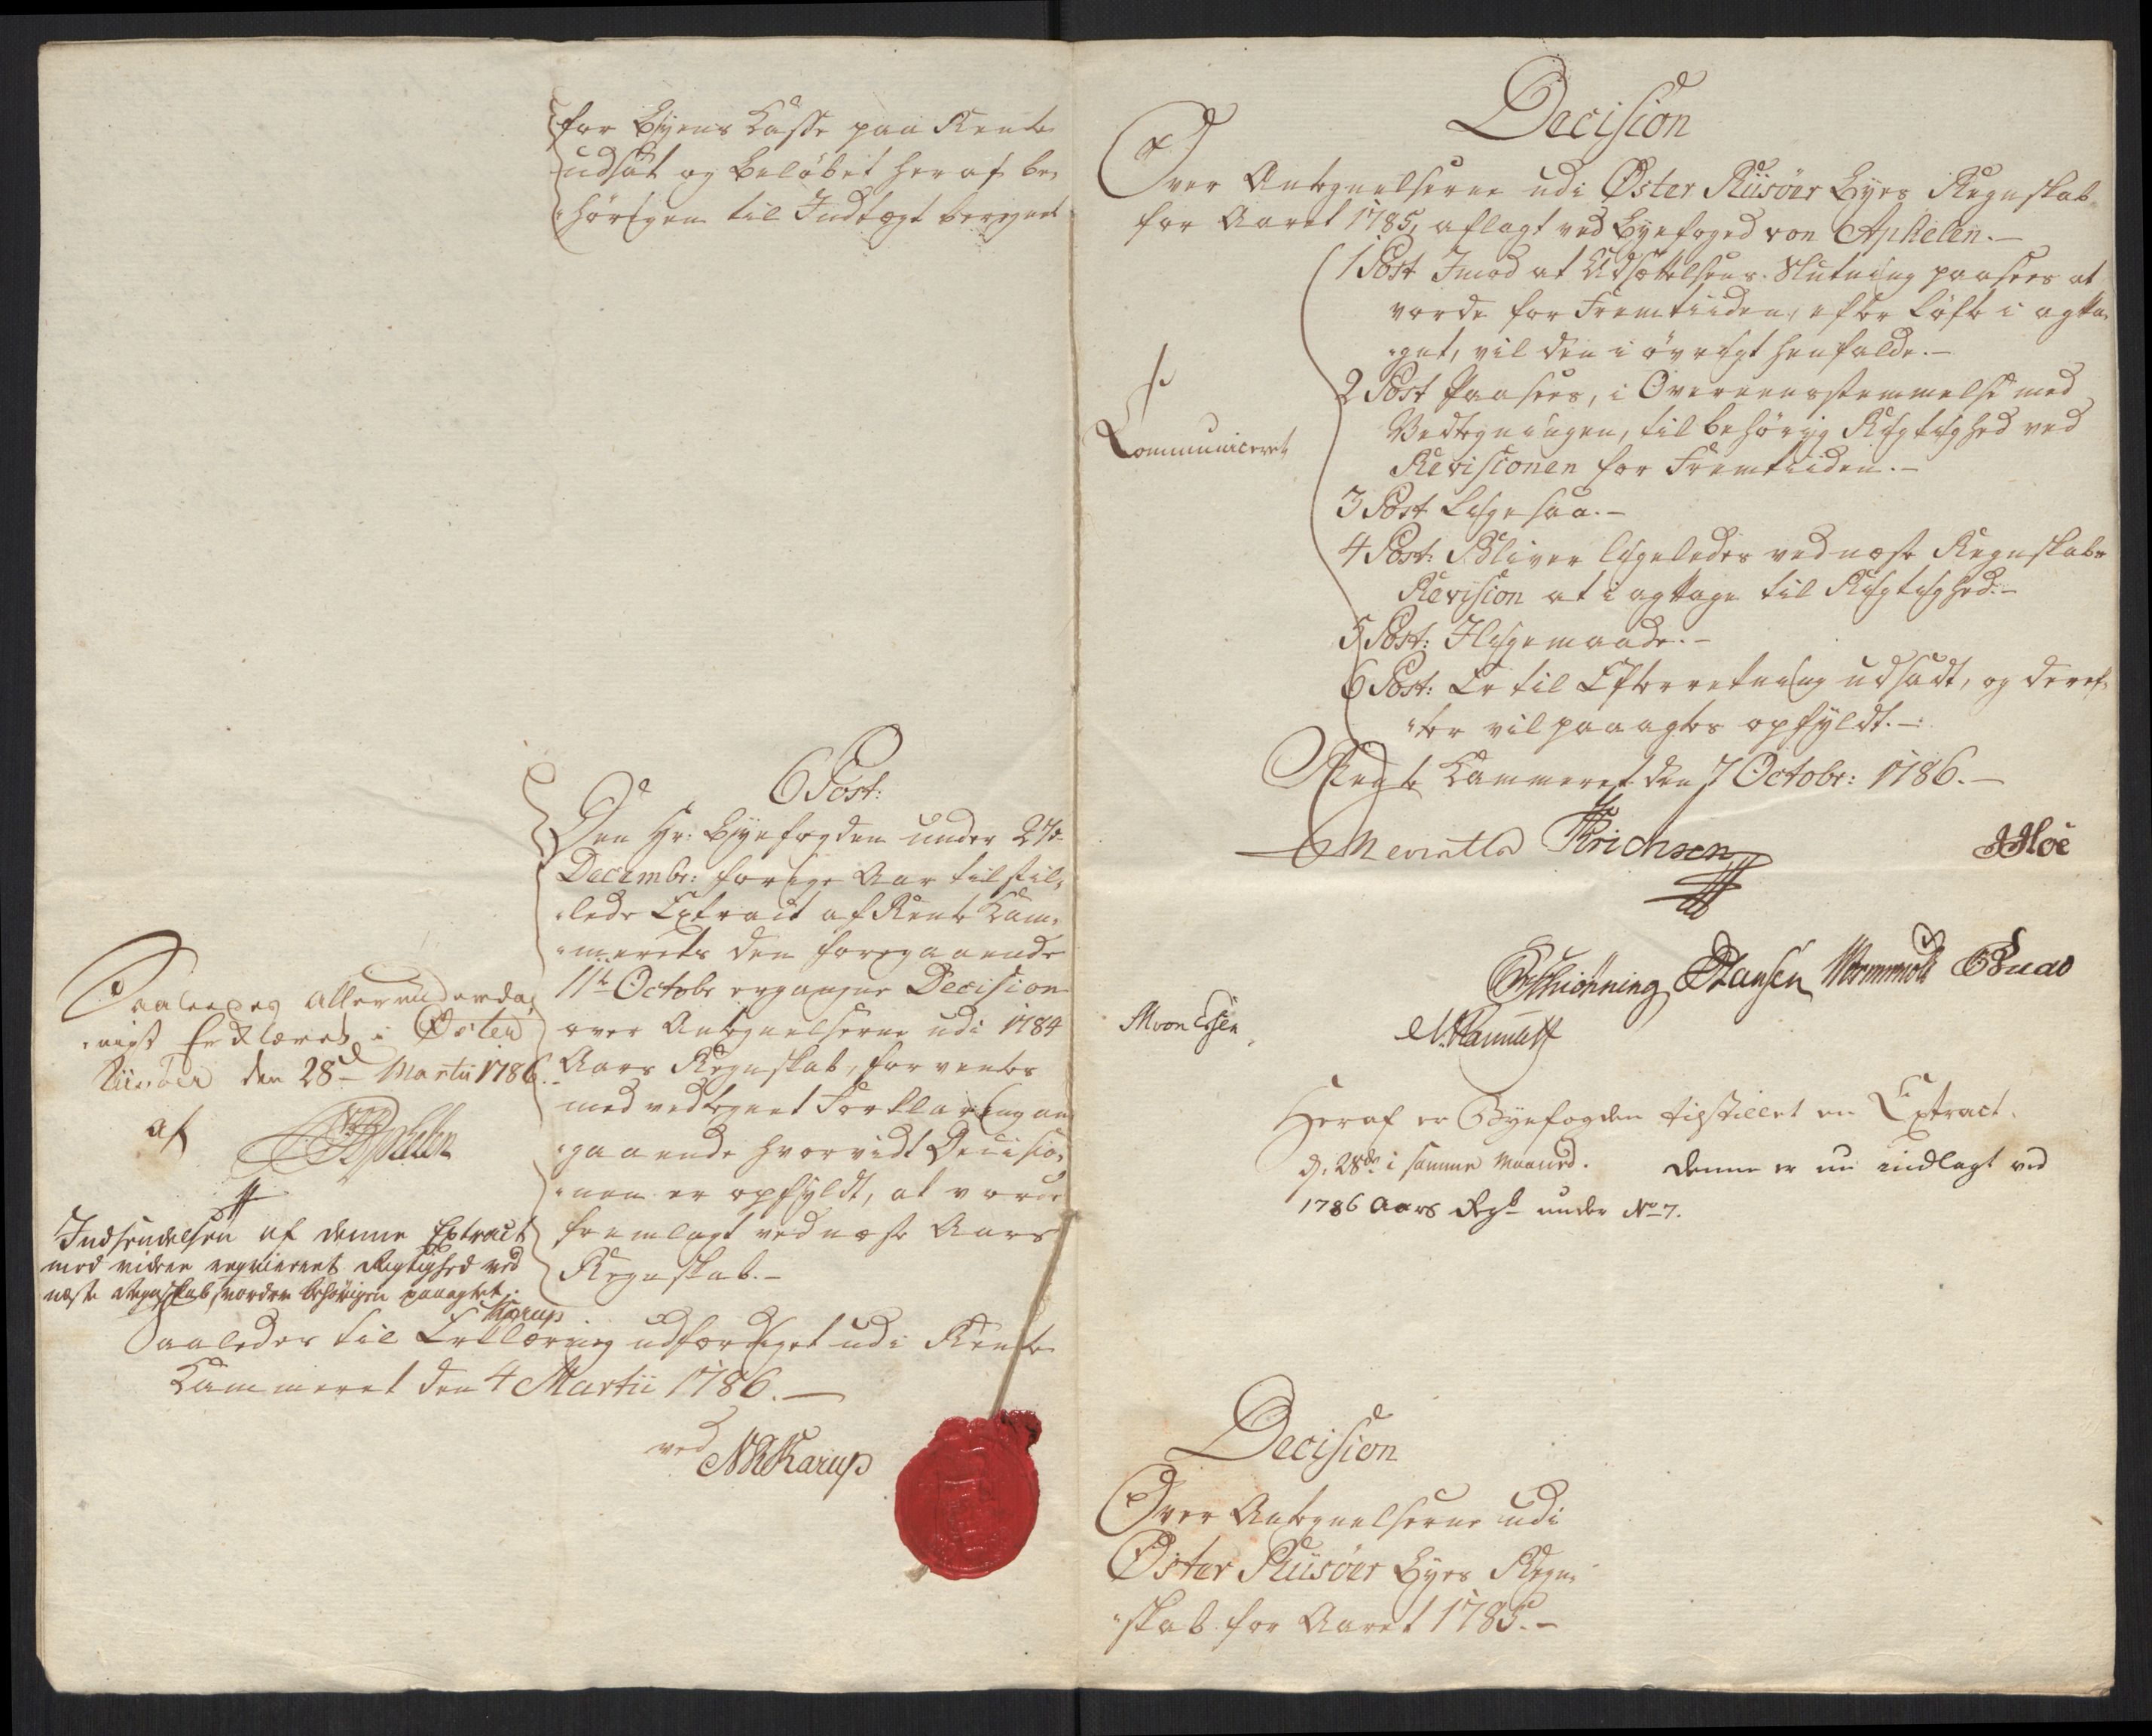 for Byens Casse paa Rente
udsat og beløbet heraf be-
hørigen til Indtægt beregnet
6 Post:
Den Hr: Byefogden under 27de
Decembr: forrige Aar tilstil-
lede Extract af Rente Kam-
merets den foregaaende
11te Octobr ergangne Decision
over Antegnelserne udi 1784
Aars Regnskab, forventes
med vedtegnet Forklaring an-
gaaende hvorvidt Decisio-
nen er opfyldt, at vorde
fremlagt ved næste Aars
Regnskab.-
Saaledes allerunderda-
nigst Erklæret i Øster
Riisøer den 28de Martii 1786.
af
Aphelen
Indsendelsen af denne Extract
med videre reqvireret Rigtighed ved
næste Regnskab, vorder behørigen paaagtet.
Karup
Saaledes til Erklæring udfærdiget udi Rente
Kammeret den 4 Martii 1786.-
ved NKKarup
Decision
Over Antegnelserne udi Øster Riisøer Byes Regnskab
for Aaret 1785, aflagt ved Byefoged von Aphelen.-
1 Post Imod at Udsættelsens Slutning paasees at
vorde for Fremtiiden, efter Løfte i agtta-
get, vil den i øvrigt henfalde.-
Communiceret
2 Post Paasees, i Overeensstemmelse med
Vedtegningen, til behørig Rigtighed ved
Revisionen for Fremtiiden.-
3 Post Ligesaa.-
4 Post: Bliver ligeledes ved næste Regnskabs
Revision at iagttage til Rigtighed.-
5 Post: Iligemaade.-
6 Post: Er til Efterretning udsadt, og deref-
ter vil paaagtes opfyldt.-
Rente Kammeret den 7 Octobr: 1786.-
Erichsen
JHoë
Schiønning Hansen Wormwold
M von Essen
Heraf er Byefogden tilstillet en Extract
d. 28de i samme Maaned. denne er nu indlagt ved
1786 Aars Regsk under No 7.
Decision
Over Antegnelserne udi
Øster Riisøer Byes Regn-
skab for Aaret 1785.-